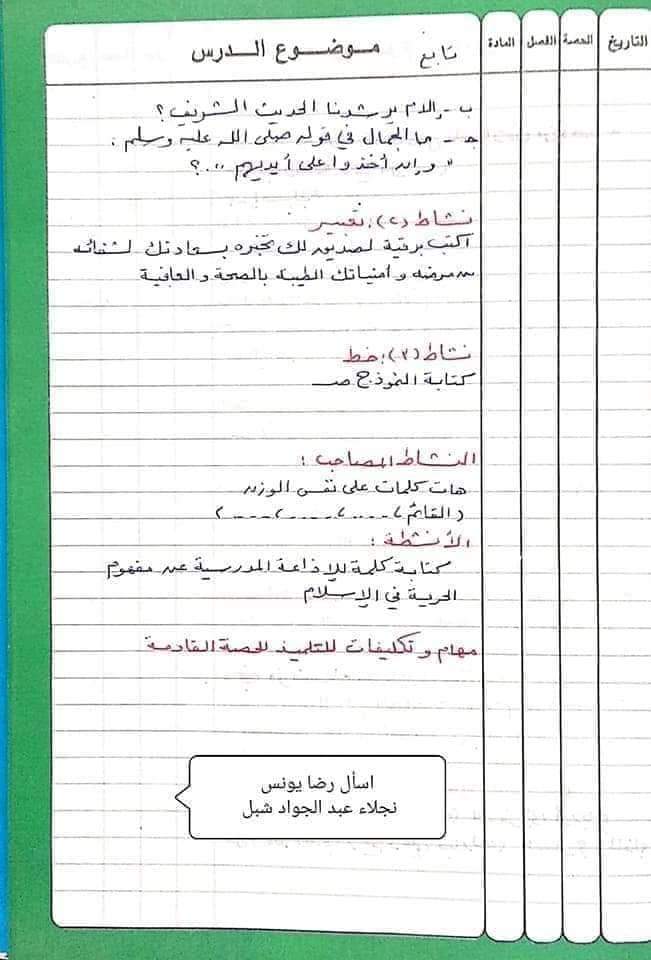 التاريخ الحصة الفصل المادة تابع موضوع الدرس
ب - إلام يرشدنا الحديث الشريف؟
جـ - ما الجمال في قوله صلى الله عليه وسلم :
" وإن أخذوا على أيديهم ...؟
نشاط (٢): تعبير
اكتب برقية لصديق لك تخبره بسعادتك لشفائه
من مرضه وأمنياتك الطيبة بالصحة والعافية
نشاط (٣): خط
كتابة النموذج صـ
النشاط المصاحب :
هات كلمات على نفس الوزن
( القائم ، .... ، .... ، .... )
الأنشطة :
كتابة كلمة للإذاعة المدرسية عن مفهوم
الحرية في الإسلام
مهام وتكليفات للتلميذ للحصة القادمة
اسأل رضا يونس
نجلاء عبد الجواد شبل